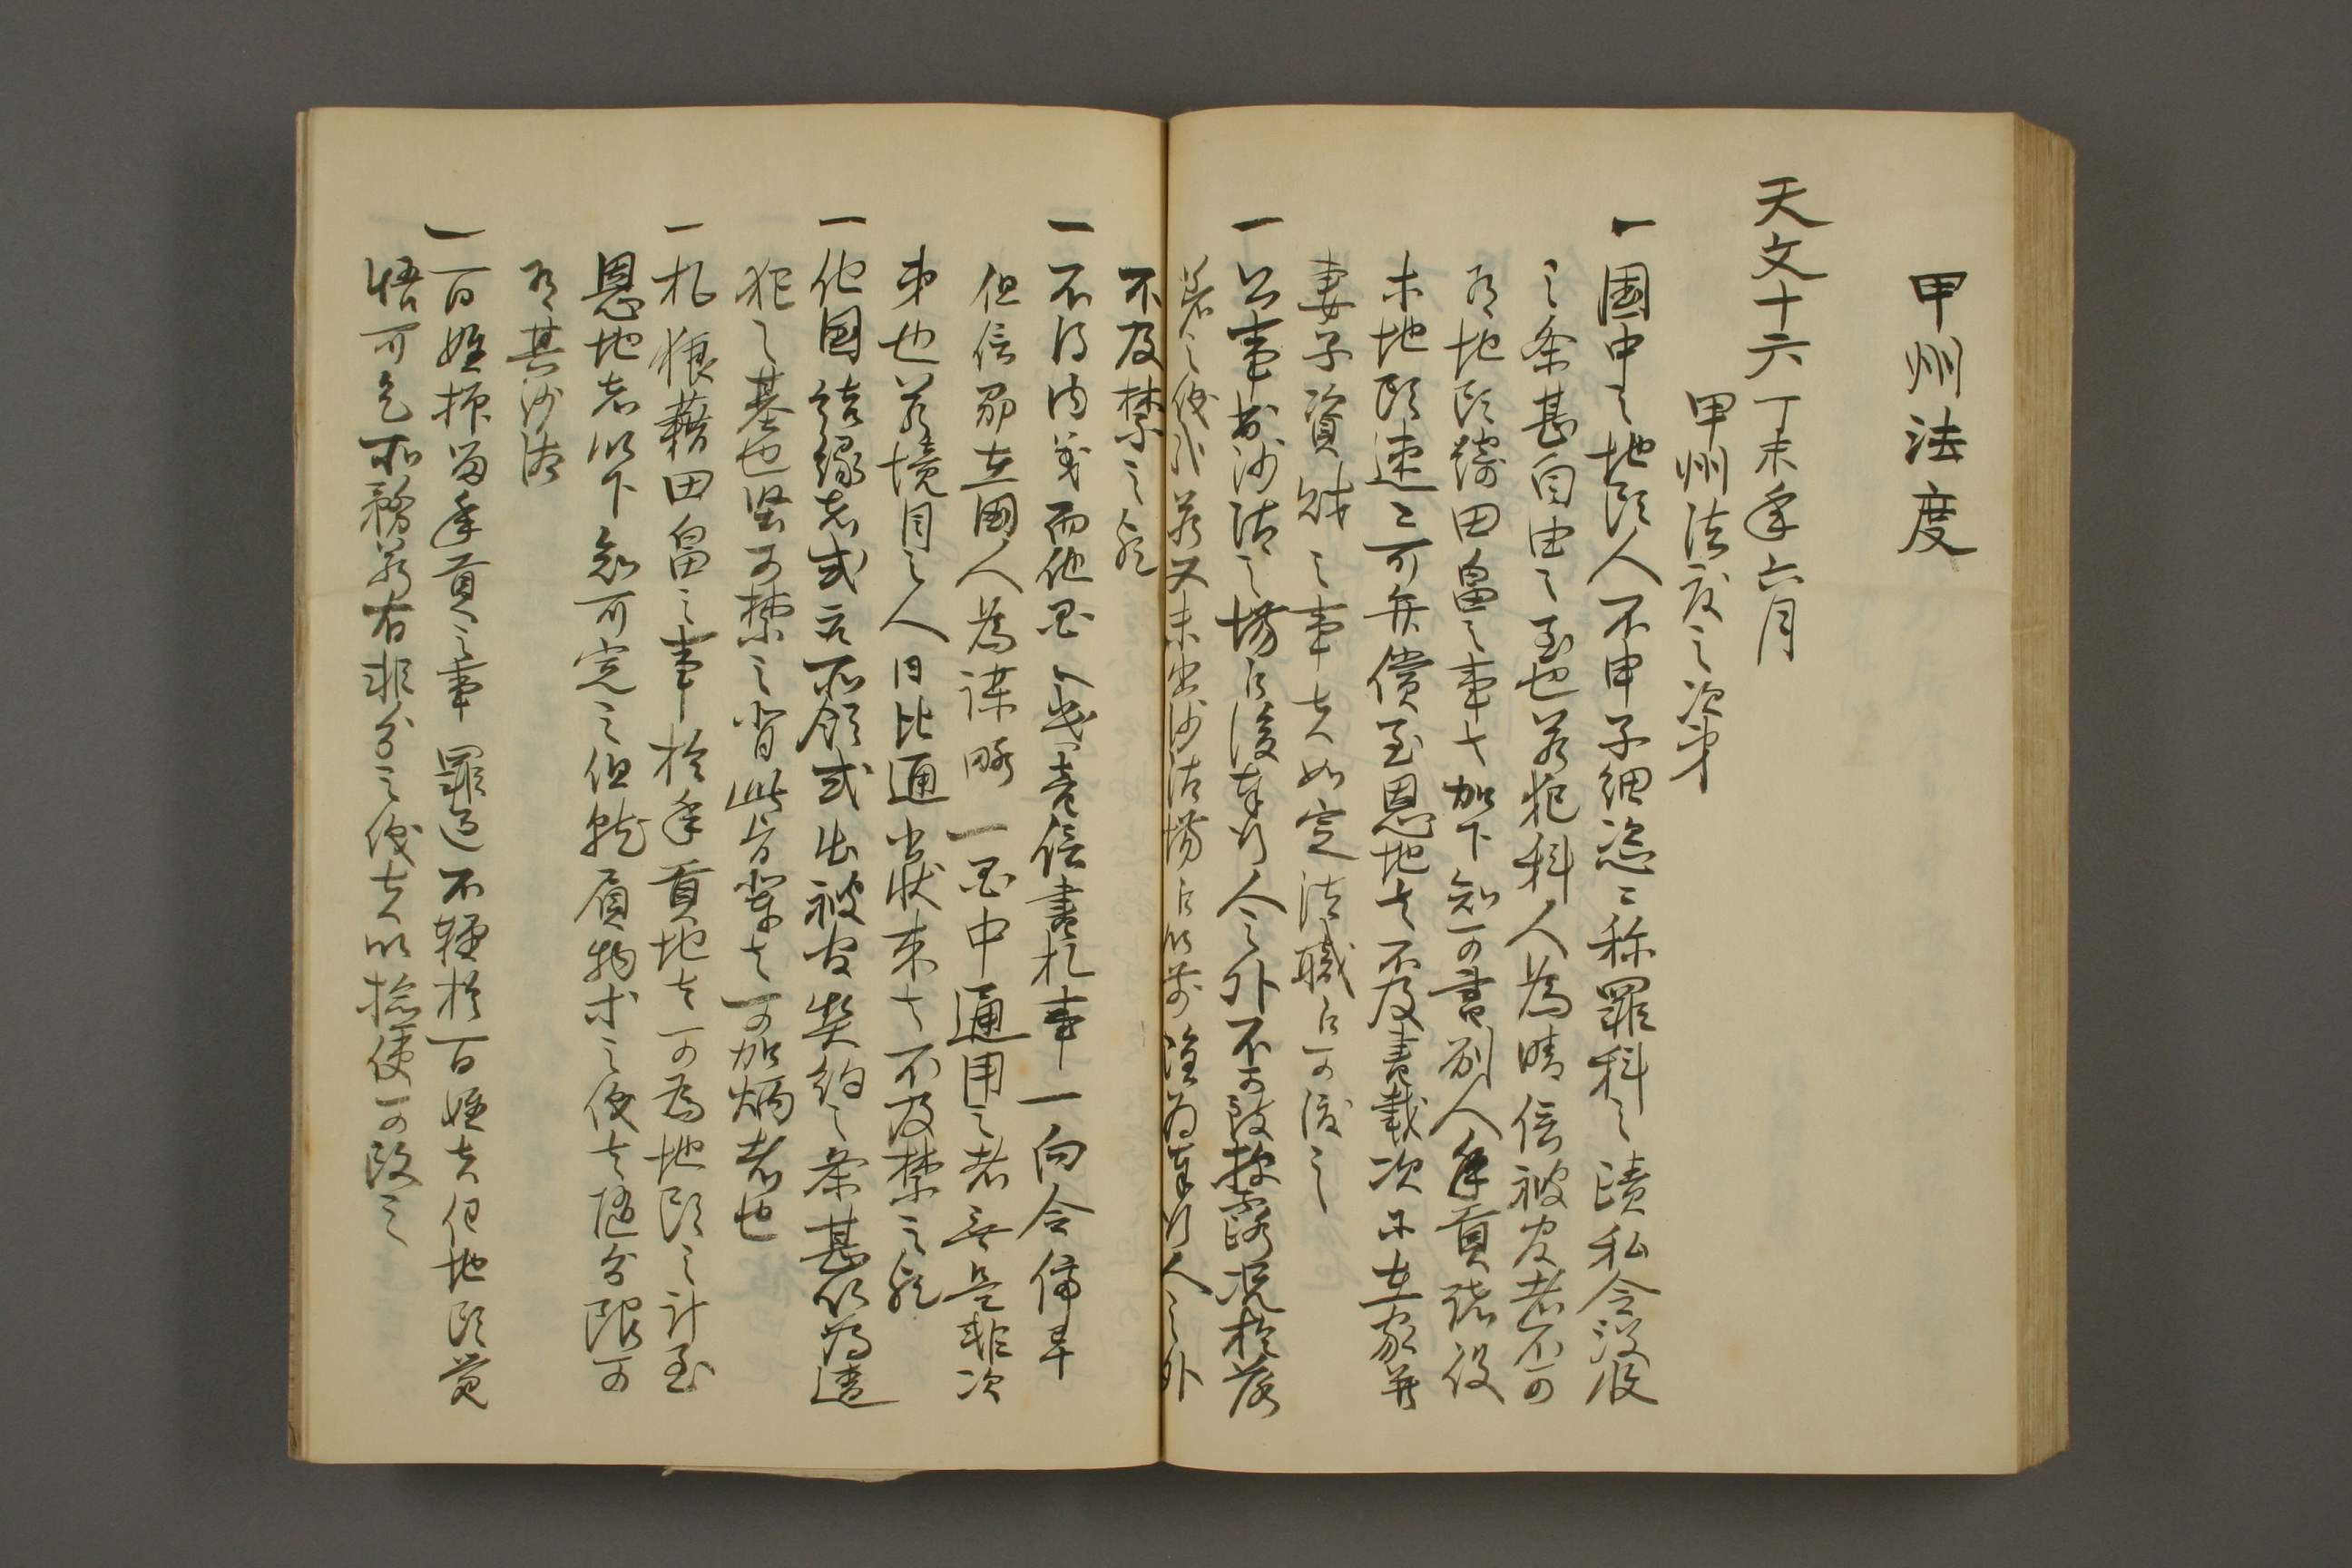 甲州法度
天文十六丁未年六月
甲州法度之次第
一国中之地頭人不申子細恣ニ称罪科之跡私令没収
之条甚自由之至也若犯科人為晴信被官者不可
有地頭綺田畠之事者加下知可書別人年貢諸役
等地頭速ニ可弁償至恩地者不及書載次ニ在家并
妻子資財之事者如定法職ニ可渡之
一公事出沙汰之場ニ後奉行人之外不可致披露況於落
着之儀哉若又未出沙汰場ニ以前雖為奉行人之外
不及禁之歟
一不得内儀而他国ヘ遣音信書札事一向令停畢
但信州在国人為謀略一国中通用之者無是非次
第也若境目之人日比通書状来者不及禁之歟
一他国結縁者或云所領或出被官契約之条甚以為違
犯之基也堅可禁之背此旨輩者可加炳者也
一札狼藉田畠之事於年貢地者可為地頭之計至
恩地者以下知可定之但就負物等之儀者随分限可
有其沙汰
一百姓抑留年貢之事罪過不軽於百姓者任地頭覚
悟可令所務若有非分之儀者以検使可改之